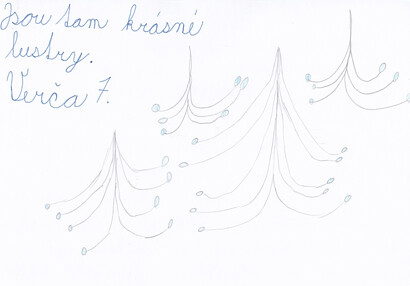 Jsou tam krásné
lustry.
Verča 7.